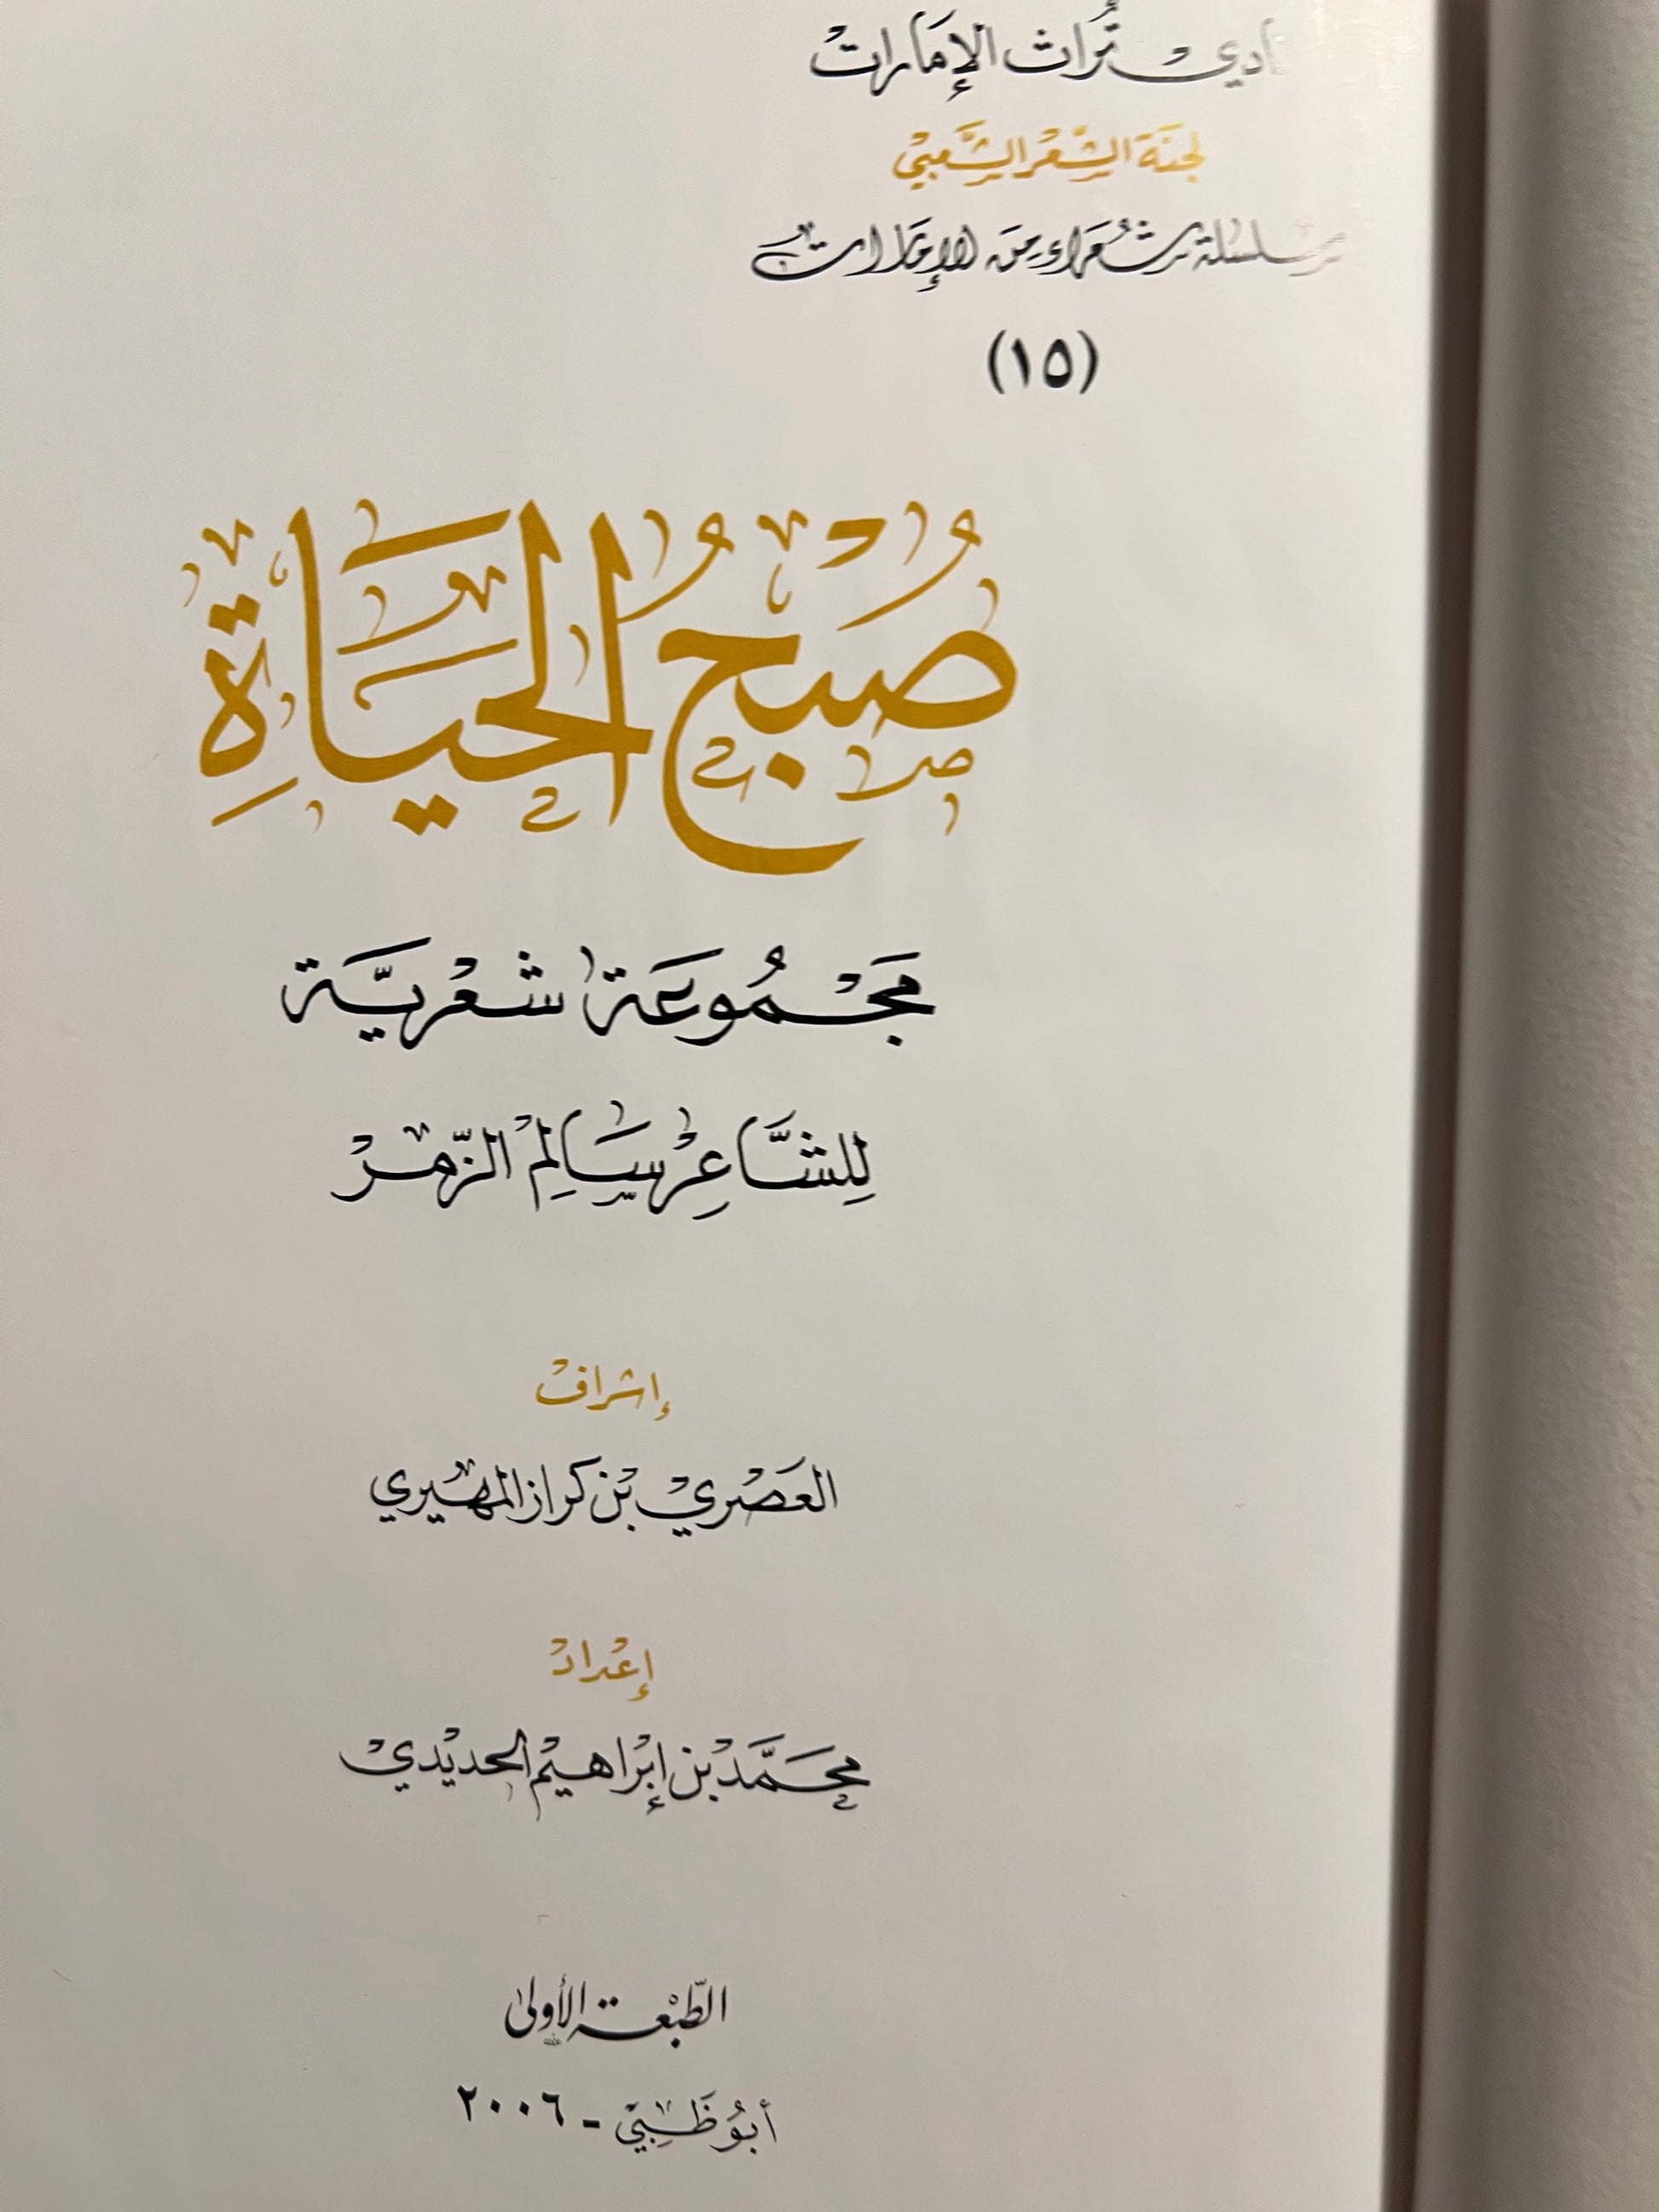 نادي تراث الإمارات
لجنَة الشِّعْر الشَّعبيْ
سلسلة شُعَراء مِنَ الإمارات
(١٥)
صُبْحُ الحَيَاةِ
مَجْمُوعَة شعْريَّة
لِلشَّاعِرْ سَالِمْ الزّمرْ
إشرافْ
العَصْريْ بْن كراز المهيري
إعْدادْ
محَمَّدْ بْن إبْراهيْم الحديْديْ
الطّبْعة الأولىٰ
أبُوظَبيْ - ٢٠٠٦